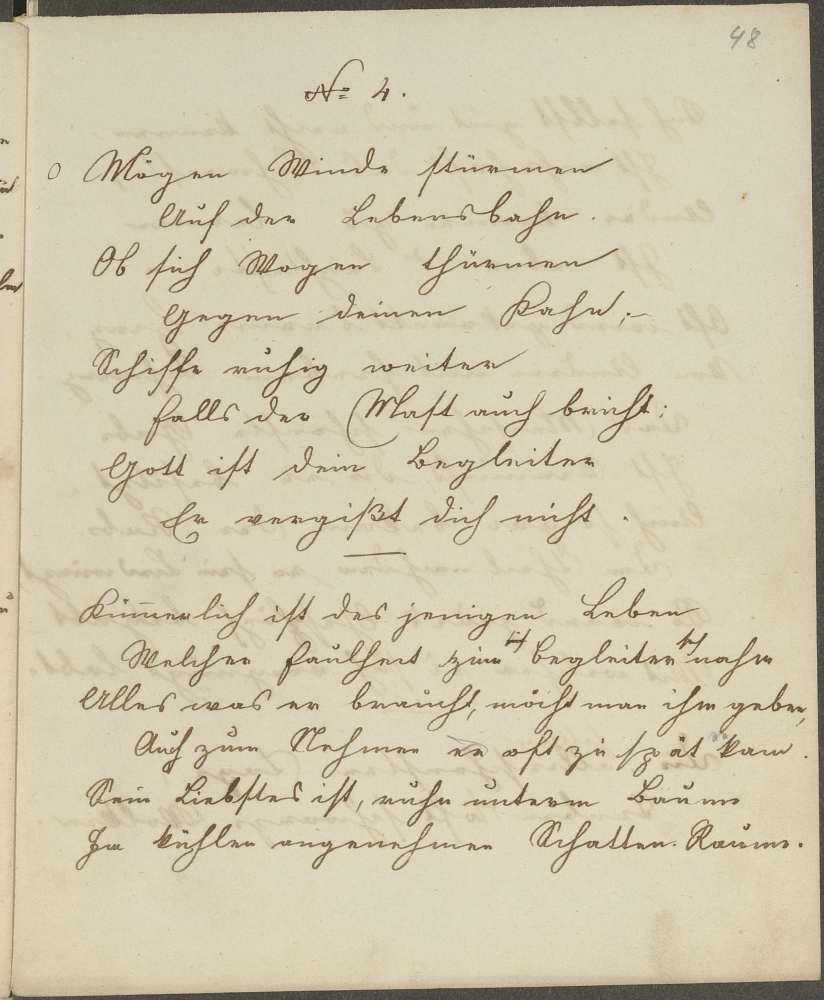 48
№ 4.
Mögen Winde stürmen
Auf der Lebensbahn.
Ob sich Wogen thürmen
Gegen deinen Kahn;–
Schiffe ruhig weiter
Falls der Mast auch bricht;
Gott ist dein Begleiter
Er vergißt dich nicht.
Kümerlich ist des jenigen Leben
Welcher Faulheit zum begleiter nahm
Alles was er braucht, möcht man ihm geben,
Auch zum Nehmen er oft zu spät kam.
Sein Liebstes ist, ruhn unterm Baume
Im kühlen angenehmen Schatten-Raume.